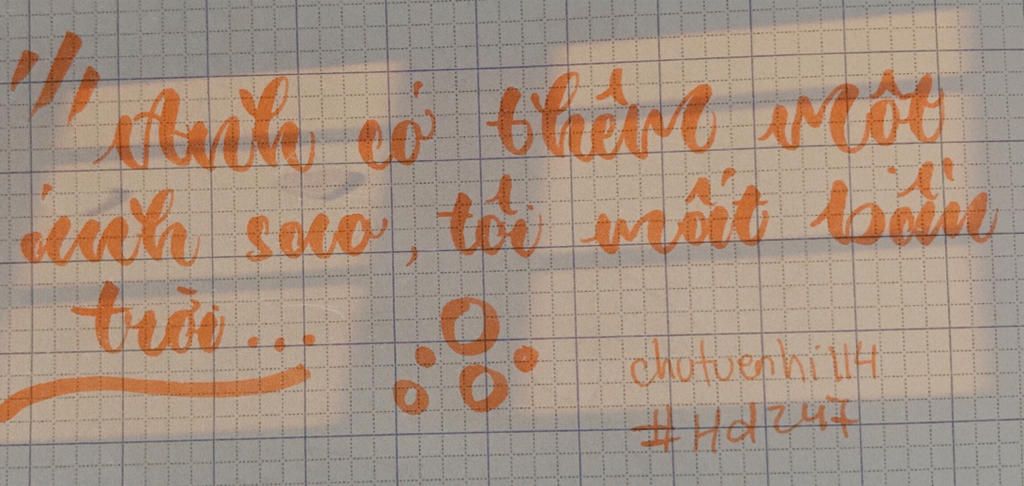 Anh có thêm một
ánh sao, tôi mất bầu
trời...
chotuenhi114
#Hd247